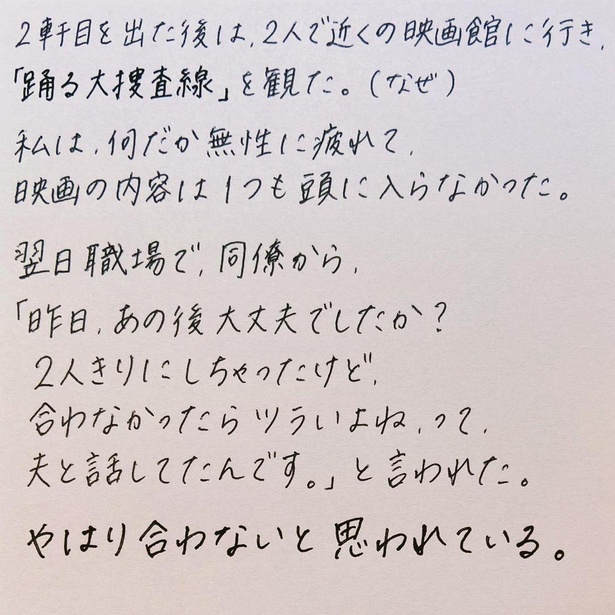 2軒目を出た後は、2人で近くの映画館に行き、
「踊る大捜査線」を観た。(なぜ)
私は、何だか無性に疲れて、
映画の内容は1つも頭に入らなかった。
翌日職場で、同僚から、
「昨日、あの後大丈夫でしたか?
2人きりにしちゃったけど、
合わなかったらツラいよね、って、
夫と話してたんです。」と言われた。
やはり合わないと思われている。